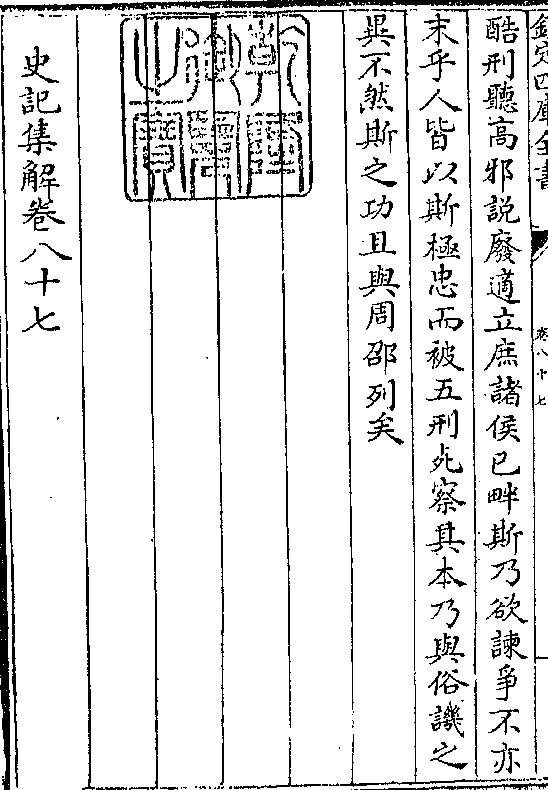 欽定四庫全書
卷八十七
酷刑聽高邪說廢適立庶諸侯已畔斯乃欲諫爭不亦
末乎人皆以斯極忠而被五刑死察其本乃與俗議之
異不然斯之功且與周邵列矣
乾隆御覽之寶
史記集解卷八十七